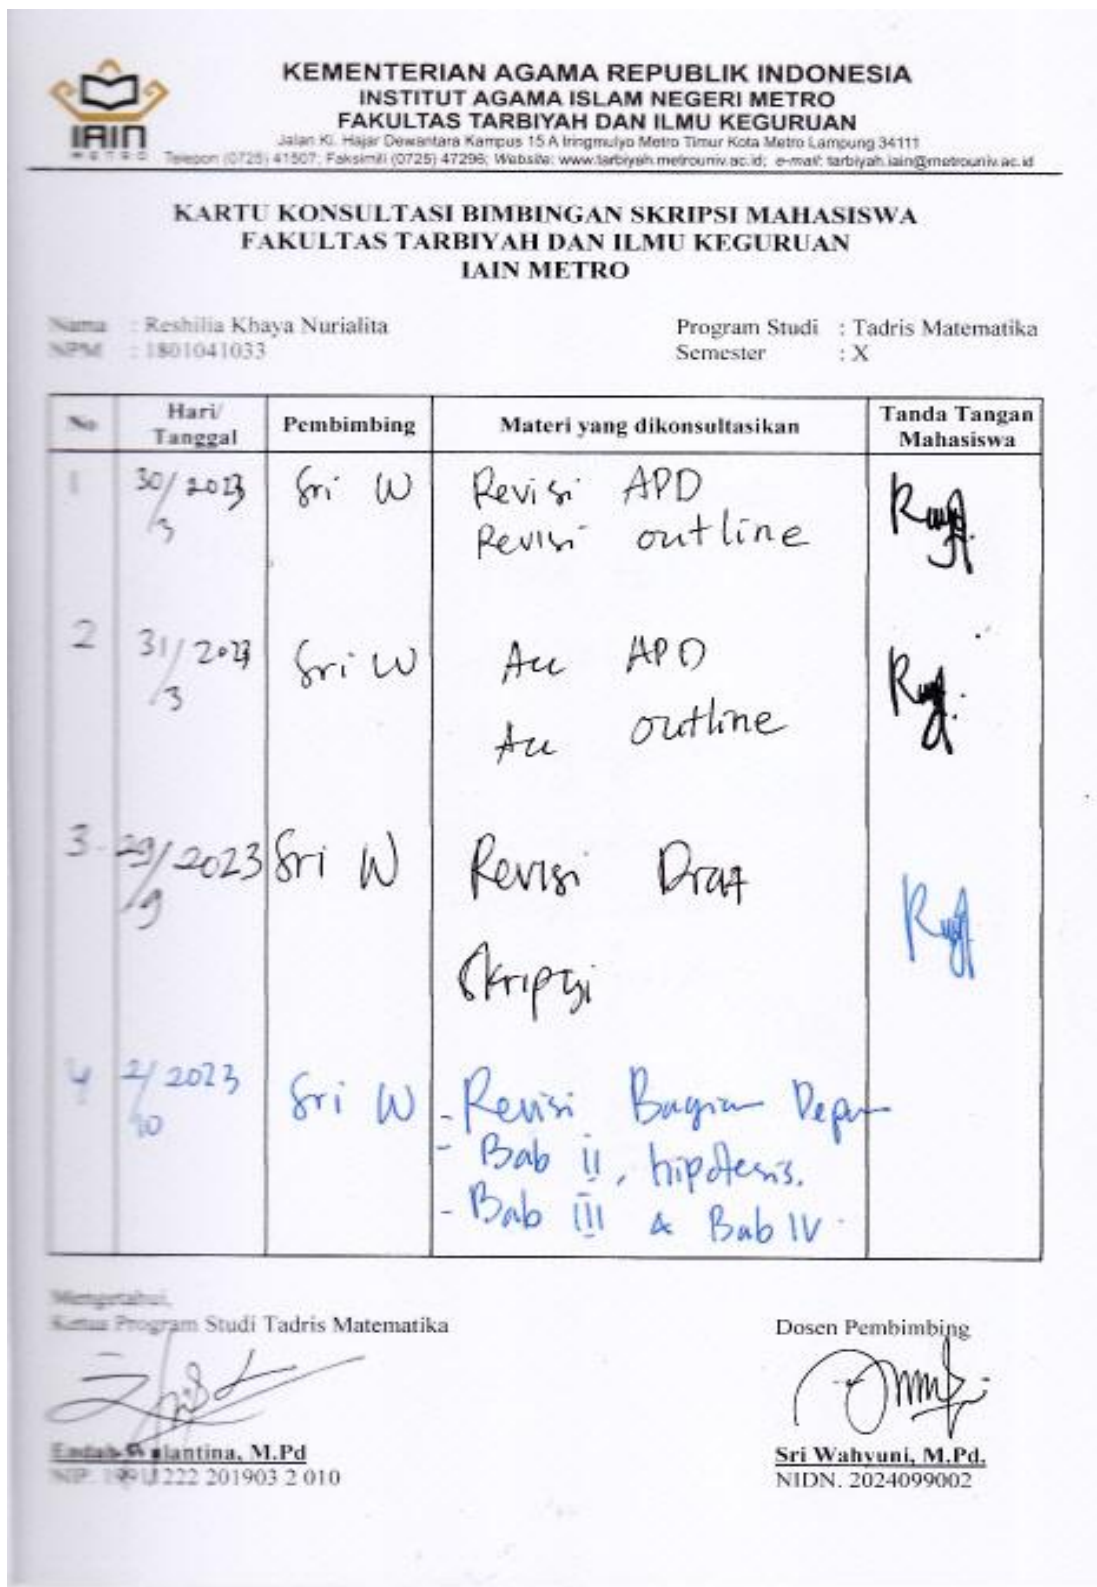 IAIN
METRO
KEMENTERIAN AGAMA REPUBLIK INDONESIA
INSTITUT AGAMA ISLAM NEGERI METRO
FAKULTAS TARBIYAH DAN ILMU KEGURUAN
Jalan Ki. Hajar Dewantara Kampus 15 A Iringmulyo Metro Timur Kota Metro Lampung 34111
Telepon (0725) 41507; Faksimili (0725) 47296; Website: www.tarbiyah.metrouniv.ac.id; e-mail: tarbiyah.iain@metrouniv.ac.id
KARTU KONSULTASI BIMBINGAN SKRIPSI MAHASISWA
FAKULTAS TARBIYAH DAN ILMU KEGURUAN
IAIN METRO
Nama : Reshilia Khaya Nurialita
NPM : 1801041033
Program Studi : Tadris Matematika
Semester : X
No Hari/ Tanggal Pembimbing Materi yang dikonsultasikan Tanda Tangan Mahasiswa
1 30/3 2023 Sri W Revisi APD
Revisi outline
2 31/3 2023 Sri W Acc APD
Acc outline
3. 29/9 2023 Sri W Revisi Draf
Skripsi
4 2/10 2023 Sri W - Revisi Bagian Depan
- Bab II, hipotesis.
- Bab III & Bab IV
Mengetahui,
Ketua Program Studi Tadris Matematika
Dosen Pembimbing
Endah Wulantina, M.Pd
NIP. 19911222 201903 2 010
Sri Wahyuni, M.Pd.
NIDN. 2024099002